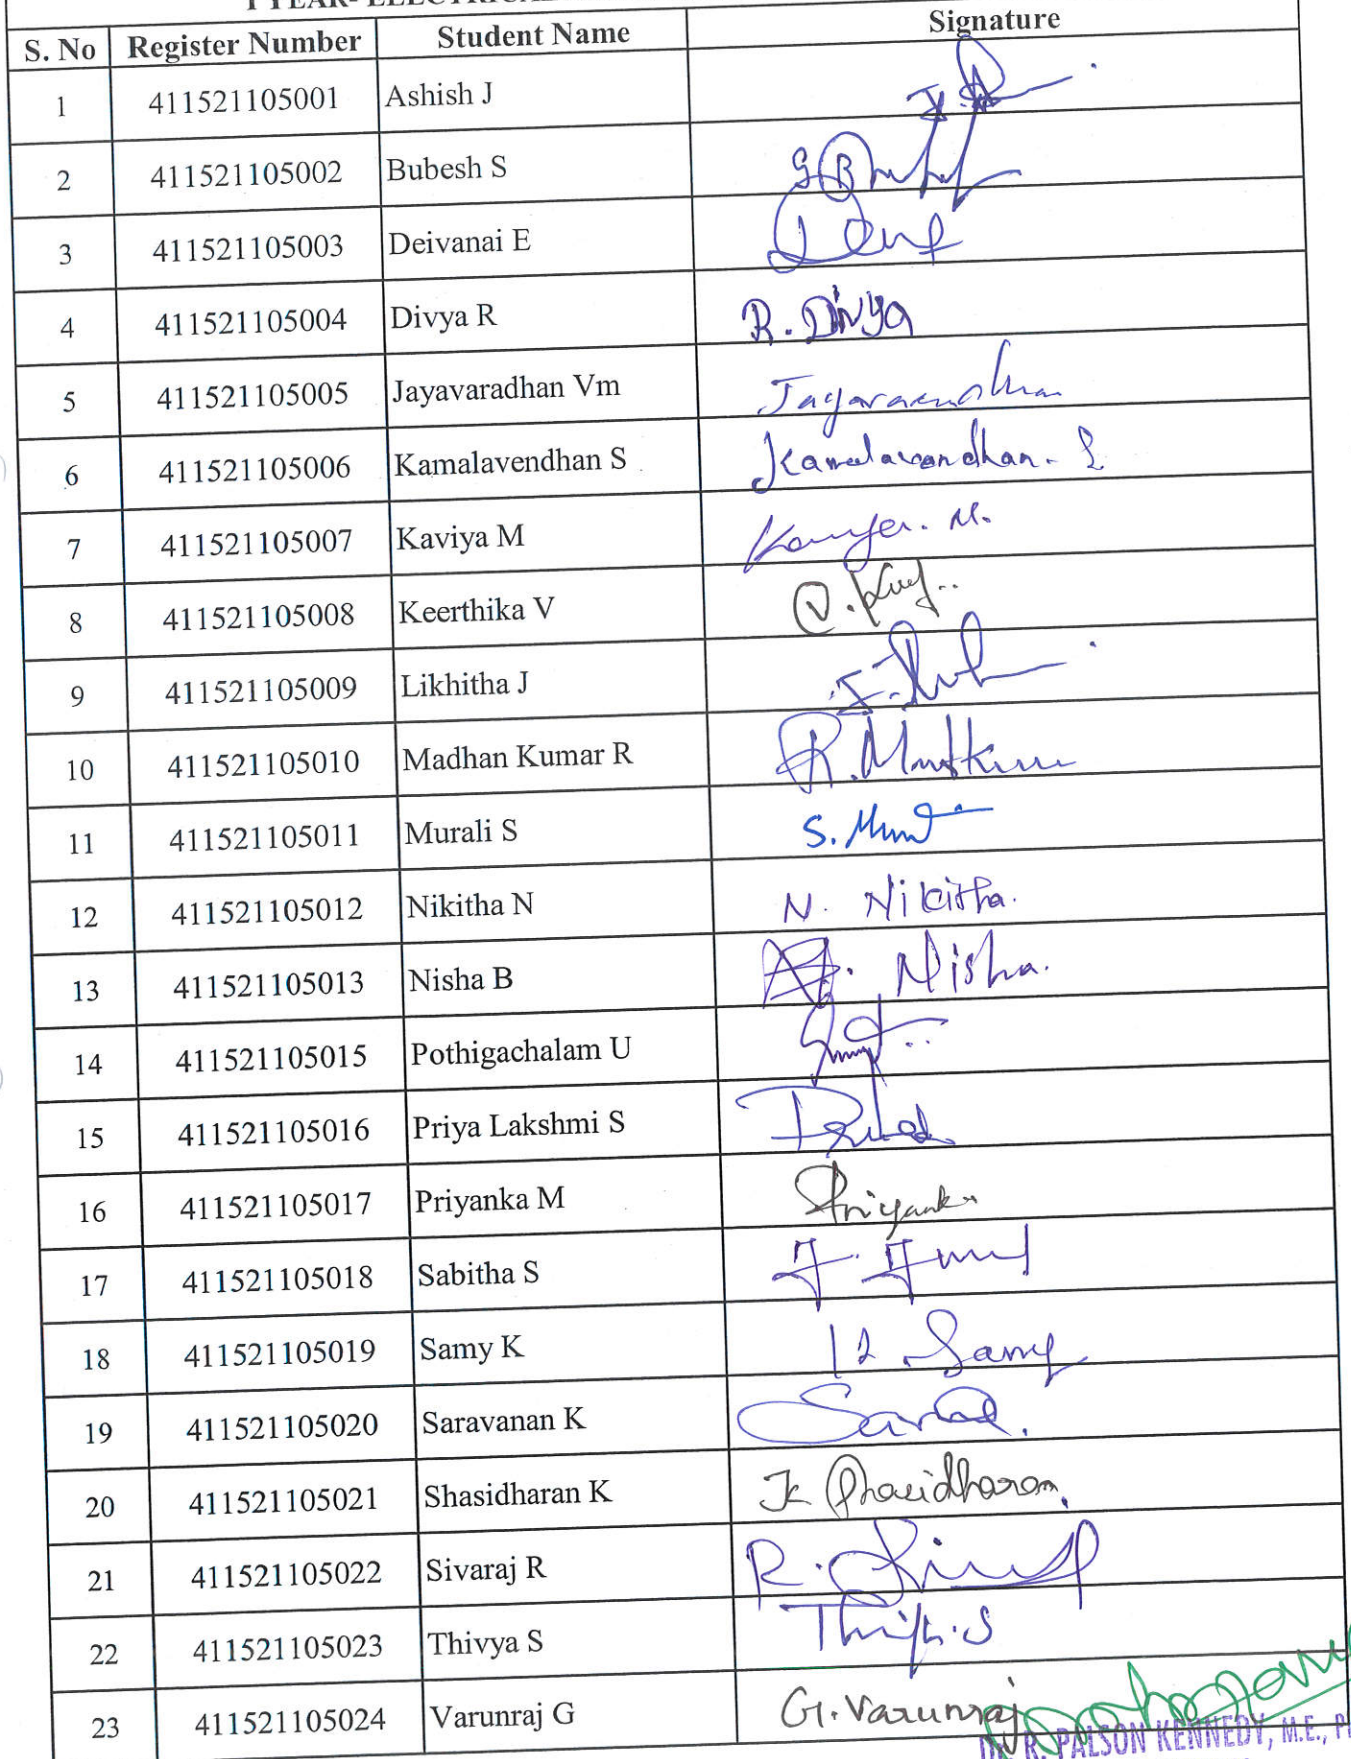 I YEAR- ELECTRICAL
S. No Register Number Student Name Signature
1 411521105001 Ashish J
2 411521105002 Bubesh S
3 411521105003 Deivanai E
4 411521105004 Divya R R. Divya
5 411521105005 Jayavaradhan Vm
6 411521105006 Kamalavendhan S
7 411521105007 Kaviya M
8 411521105008 Keerthika V
9 411521105009 Likhitha J
10 411521105010 Madhan Kumar R
11 411521105011 Murali S
12 411521105012 Nikitha N N. Nikitha.
13 411521105013 Nisha B Nisha.
14 411521105015 Pothigachalam U
15 411521105016 Priya Lakshmi S
16 411521105017 Priyanka M Priyanka
17 411521105018 Sabitha S
18 411521105019 Samy K Samy
19 411521105020 Saravanan K
20 411521105021 Shasidharan K
21 411521105022 Sivaraj R
22 411521105023 Thivya S
23 411521105024 Varunraj G G. Varunraj
Dr. R. PALSON KENNEDY, M.E.,